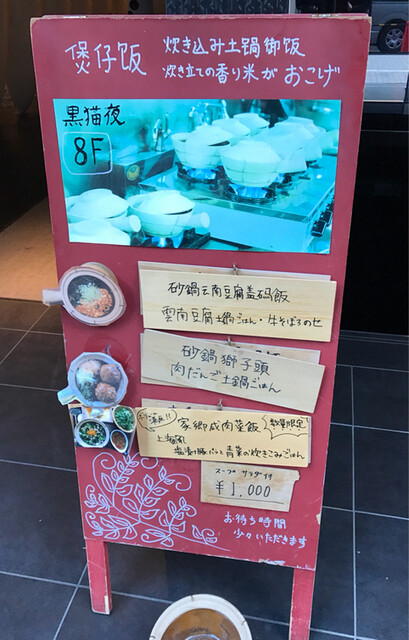 煲仔饭 炊き込み土鍋御飯
炊き立ての香り米が おこげ
黒猫夜
8F
砂鍋云南豆腐盖码飯
雲南豆腐土鍋ごはん・牛そぼろのせ
砂鍋獅子頭
肉だんご土鍋ごはん
家郷咸肉菜飯
数量限定
上海風
塩漬け豚バラと青菜の炊きこみごはん
スープ サラダ付
¥1,000
お待ち時間
少々いただきます